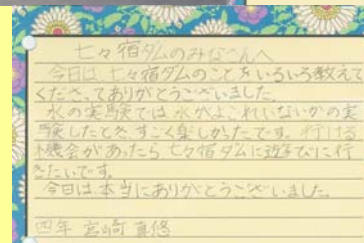 七々宿ダムのみなさんへ
今日は、七々宿ダムのことをいろいろ教えて
くださってありがとうございました。
水の実験では水がよごれていないかの実
験したとき、すごく楽しかったです。行ける
機会があったら七々宿ダムに遊びに行
きたいです。
今日は本当にありがとうございました。
四年 宮崎 真悠